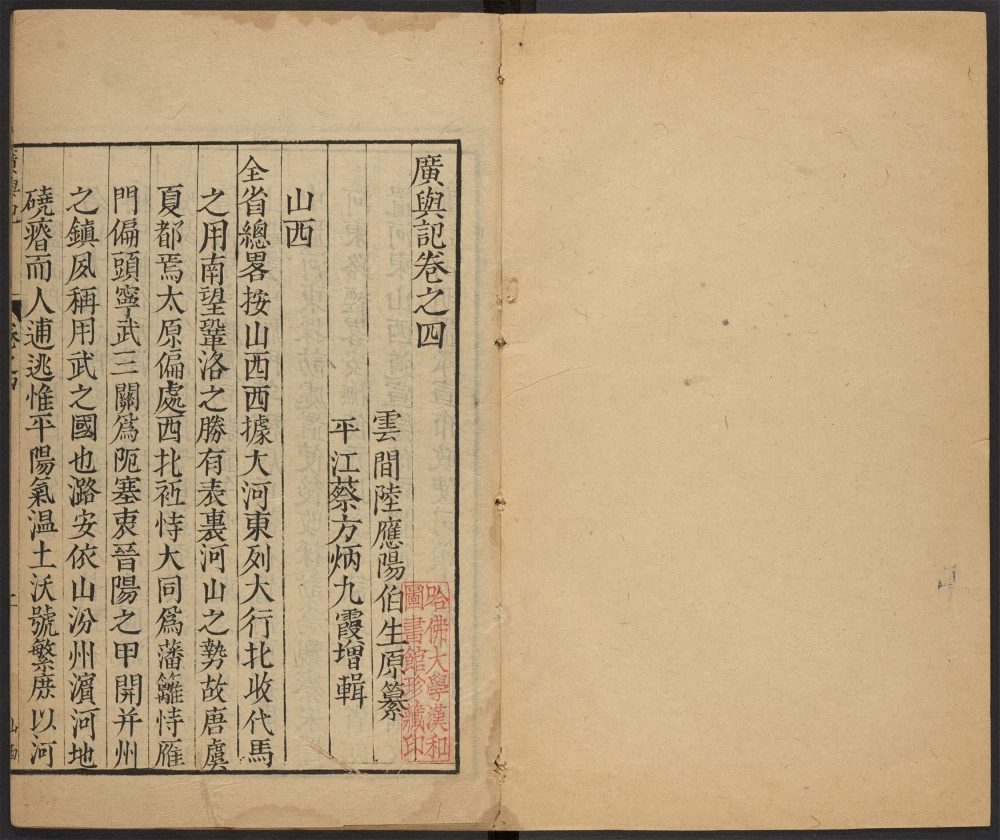 廣輿記卷之四
雲間陸應陽伯生原纂
平江蔡方炳九霞增輯
山西
全省總畧按山西西據大河東列大行北收代馬
之用南望鞏洛之勝有表裏河山之勢故唐虞
夏都焉太原偏處西北祇恃大同爲藩籬恃雁
門偏頭寧武三關爲阨塞衷晉陽之甲開并州
之鎮夙稱用武之國也潞安依山汾州濱河地
磽瘠而人逋逃惟平陽氣温土沃號繁庶以河
哈佛大學漢和
圖書館珍藏印
卷之四
山西